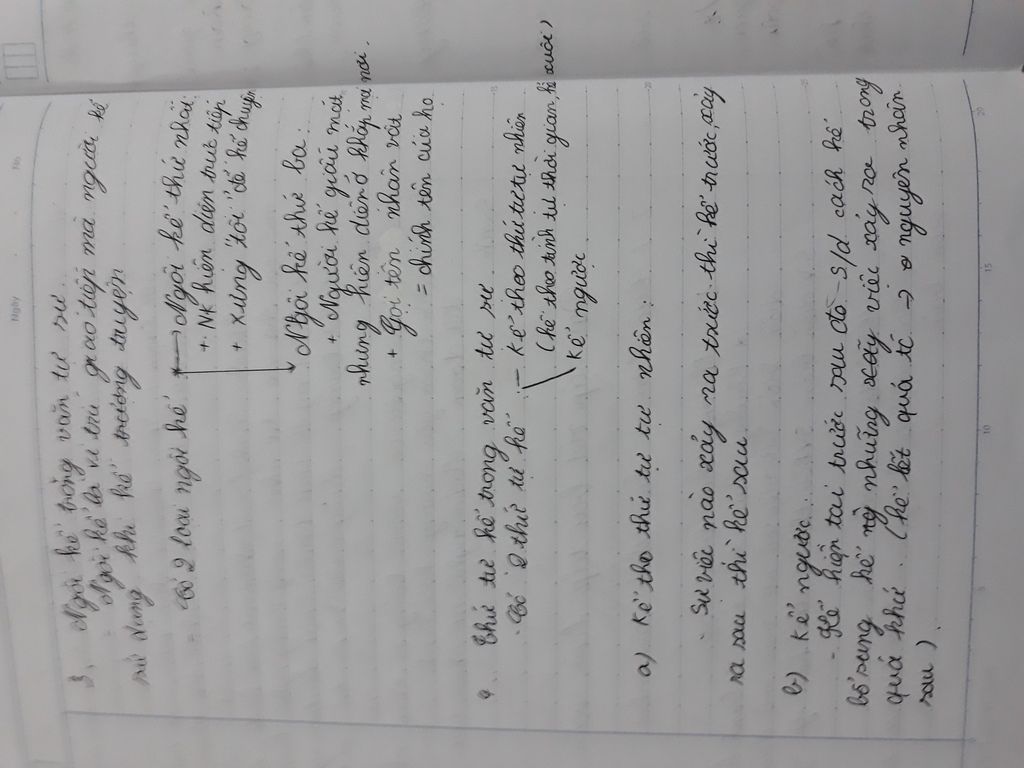 Ngày
No.
3. Ngôi kể trong văn tự sự.
= Ngôi kể là vị trí giao tiếp mà người kể
sử dụng khi kể trong truyện
= Có 2 loại ngôi kể → Ngôi kể thứ nhất:
+ NK hiện diện trực tiếp
+ xưng "tôi" để kể chuyện
Ngôi kể thứ ba:
+ Người kể giấu mặt
nhưng hiện diện ở khắp mọi nơi.
+ Gọi tên nhân vật
= chính tên của họ
4 Thứ tự kể trong văn tự sự
- Có 2 thứ tự kể - Kể theo thứ tự tự nhiên
(kể theo trình tự thời gian, kể xuôi)
Kể ngược.
a) Kể theo thứ tự tự nhiên:
- Sự việc nào xảy ra trước thì kể trước, xảy
ra sau thì kể sau
b) Kể ngược.
- Kể hiện tại trước sau đó - s/d cách kể
bổ sung kể những việc xảy ra trong
quá khứ. (kể kết quả tc → nguyên nhân
sau)
5
10
15
20